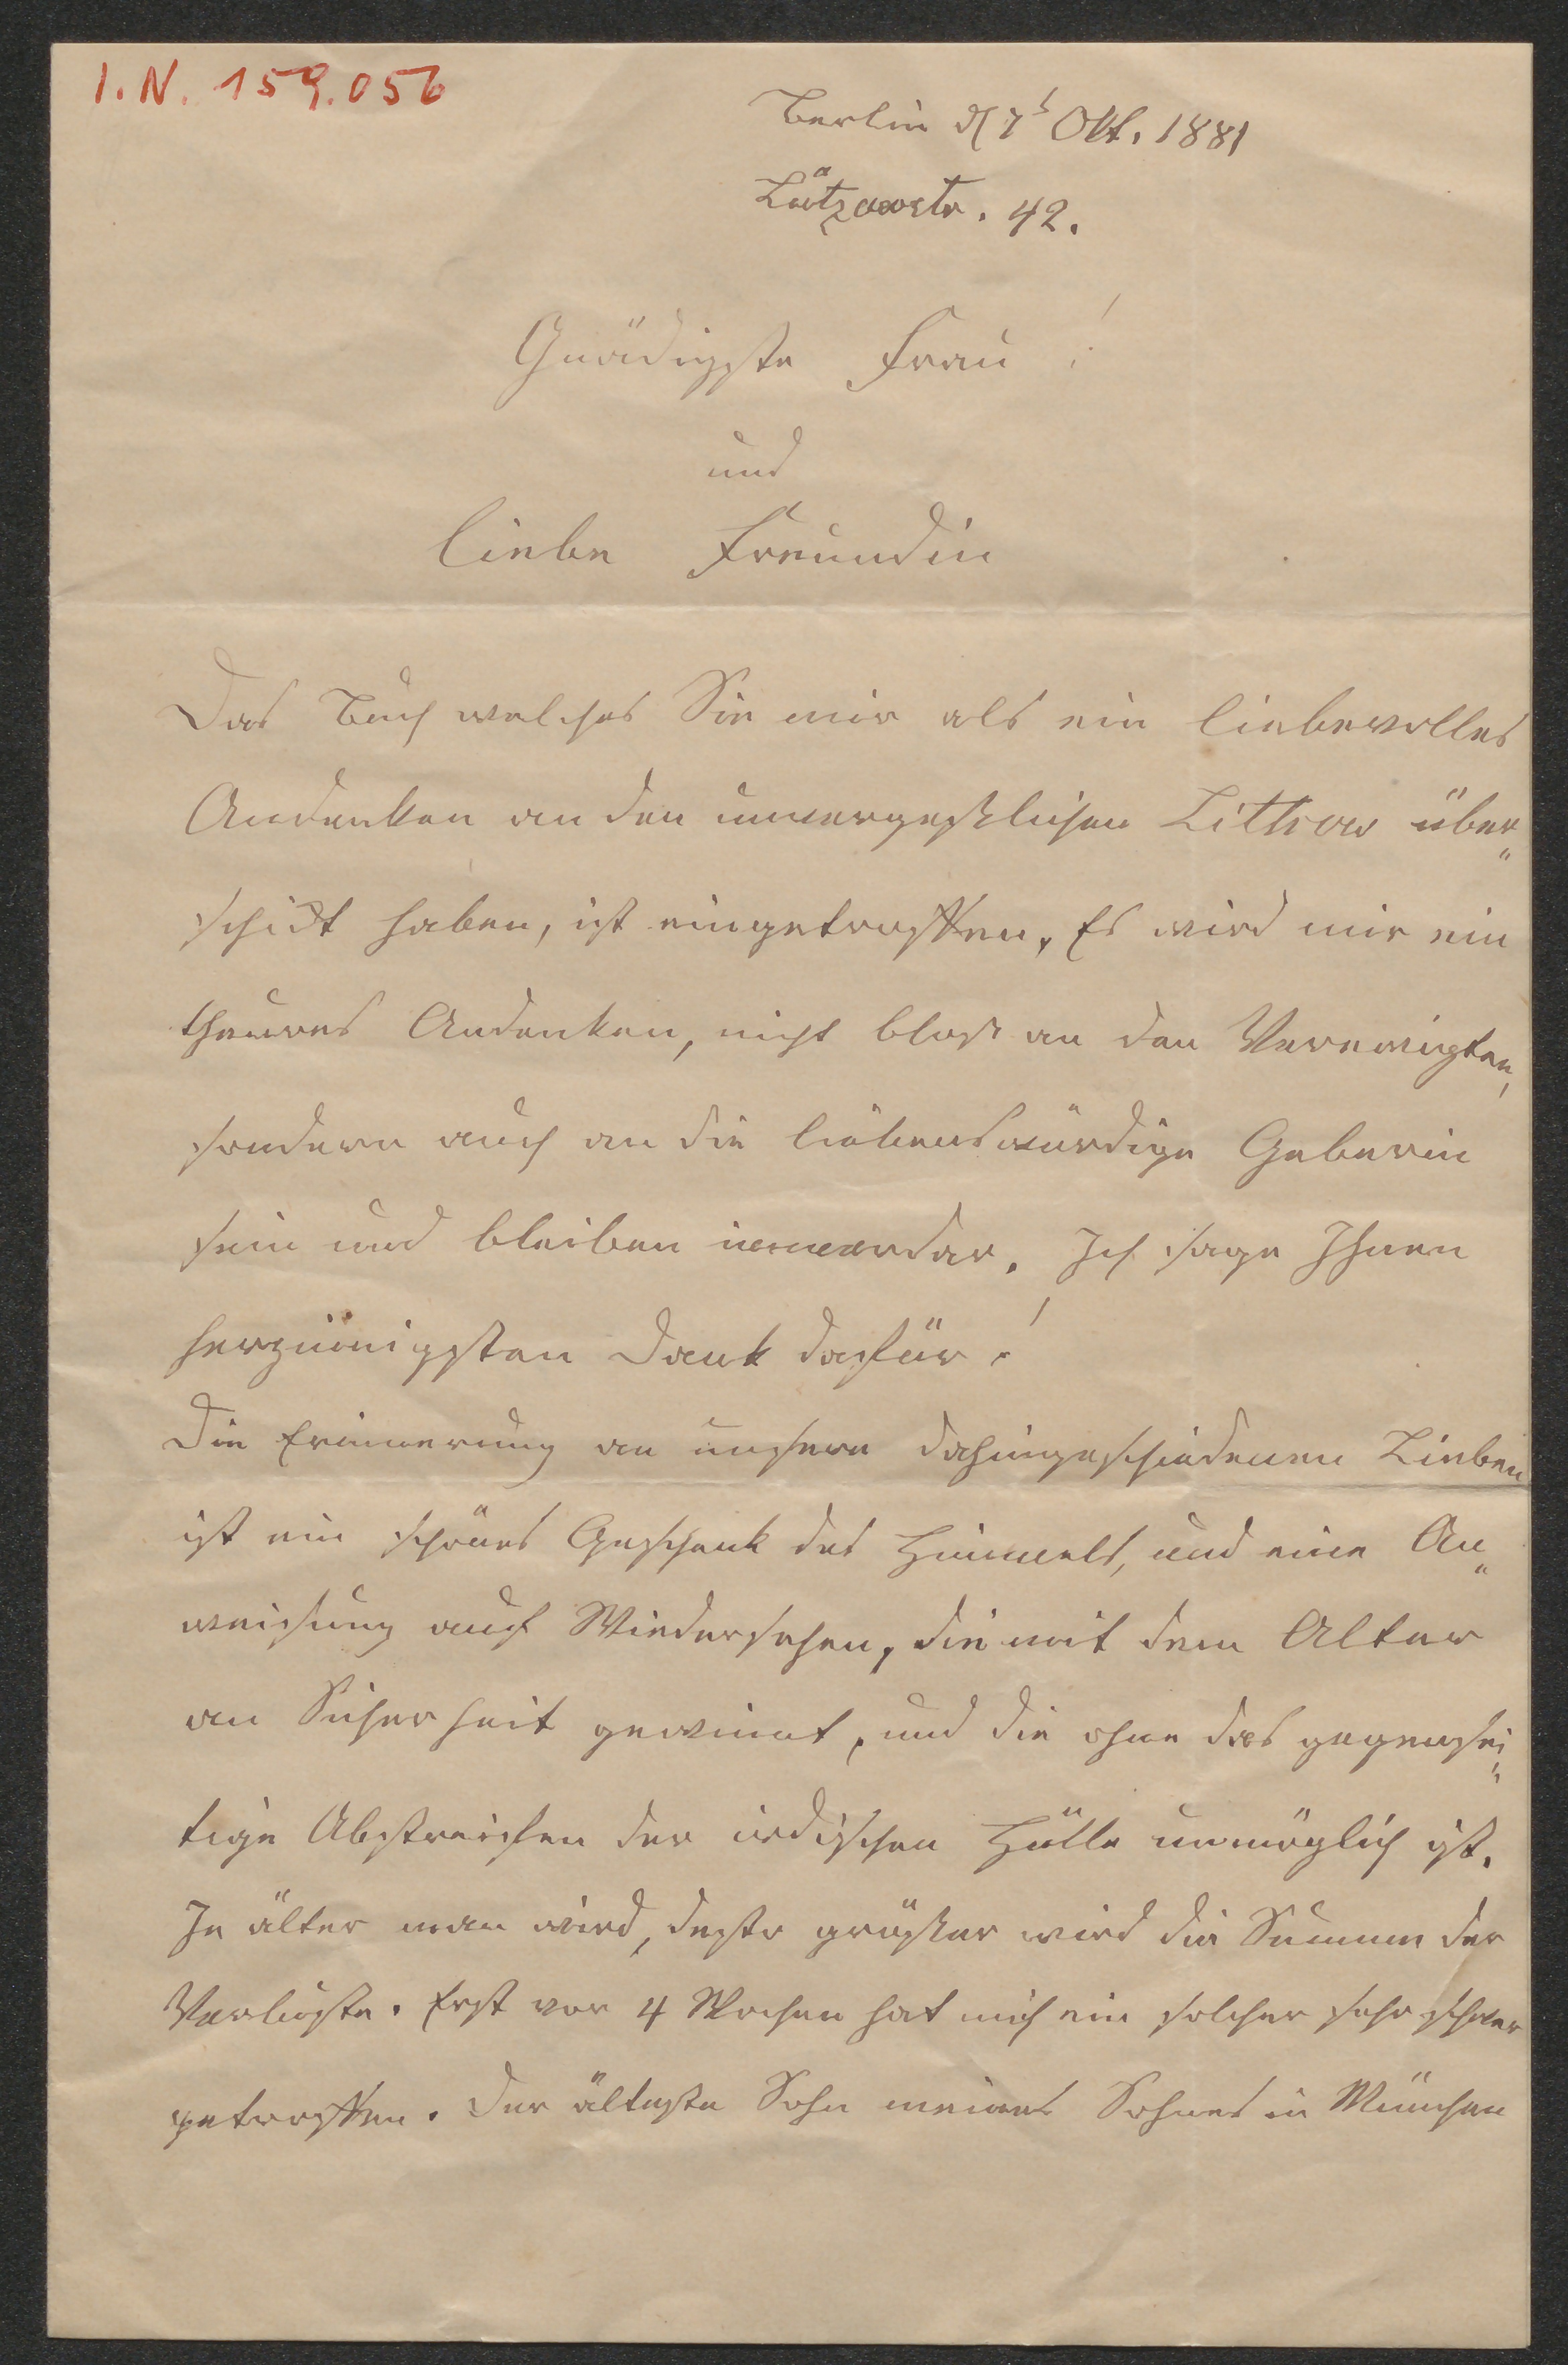 I. N. 159.056
Berlin d 7t Okt. 1881
Lützowstr. 42.
Gnädigste Frau!
und
liebe Freundin
Das Buch welches Sie mir als ein liebevolles
Andenken an den unvergeßlichen Littrow über„
schickt haben, ist eingetroffen. Es wird mir ein
theures Andenken, nicht blos an den Verewigten,
sondern auch an die liebenswürdige Geberin
sein und bleiben immerdar. Ich sage Ihnen
herzinnigsten Dank dafür!
Die Erinnerung an unsere dahingeschiedenen Lieben
ist ein schönes Geschenk des Himmels, und eine An„
weisung auf Wiedersehen, die mit dem Alter
an Sicherheit gewinnt, und die ohne das gegensei„
tige Abstreifen der irdischen Hülle unmöglich ist.
Je älter man wird, desto größer wird die Summe der
Verluste. Erst vor 4 Wochen hat mich ein solcher sehr schwer
getroffen. Der älteste Sohn meines Sohnes in München